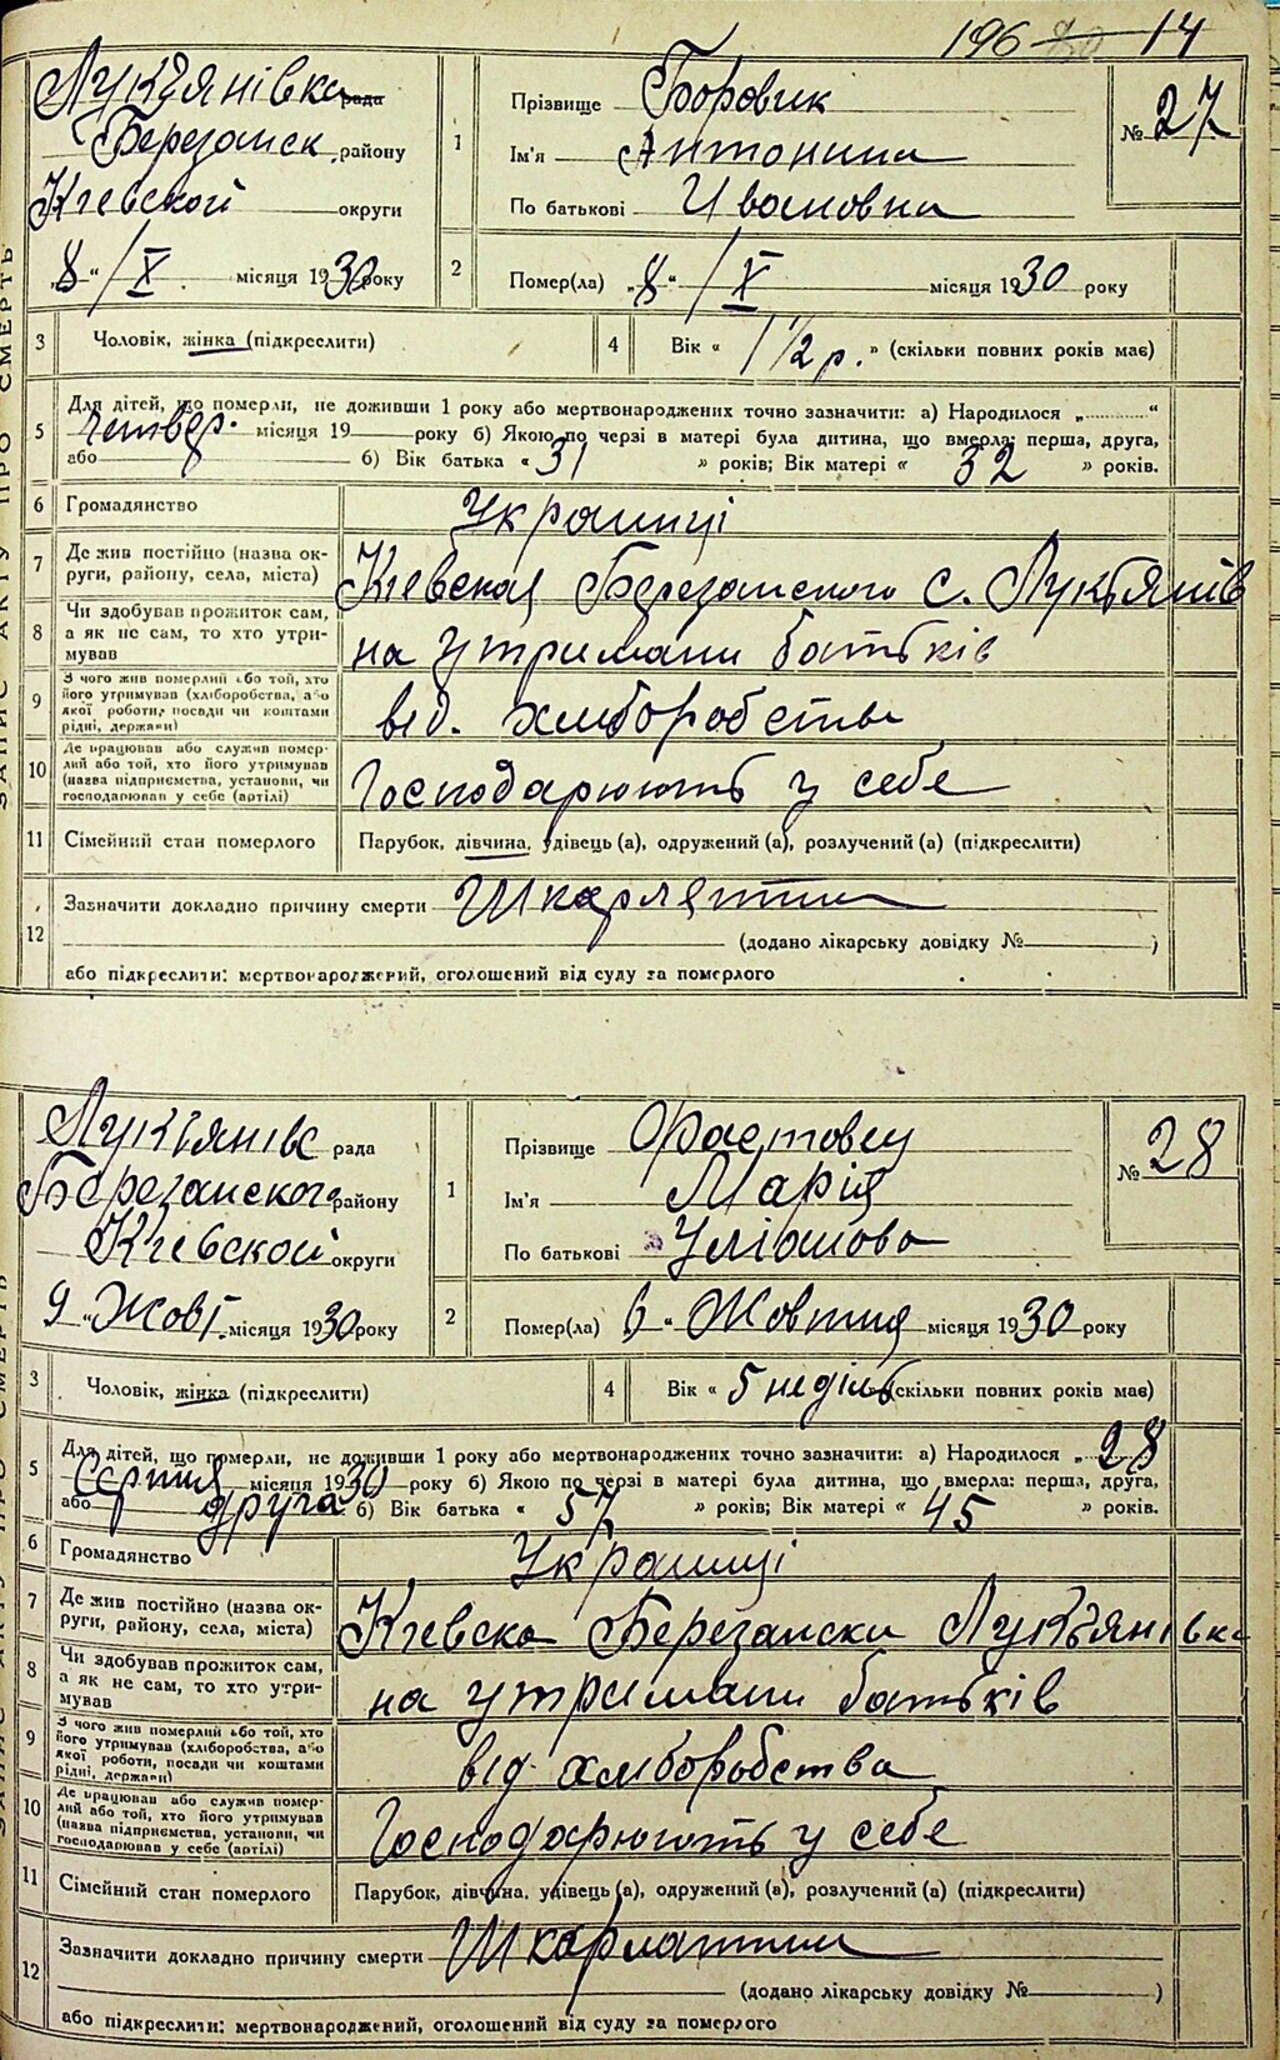 196 14
Лукянівка рада
Березанск району
Кіевской округи
„8“ / X місяця 1930 року
1
Прізвище Боровик
Ім'я Антонина
По батькові Ивановна
№ 27
2
Помер(ла) „8“ / X місяця 1930 року
3 Чоловік, жінка (підкреслити)
4 Вік « 1 1/2 р. » (скільки повних років має)
5 Для дітей, що померли, не доживши 1 року або мертвонароджених точно зазначити: а) Народилося „ “
четвер. місяця 19 року б) Якою по черзі в матері була дитина, що вмерла: перша, друга,
або б) Вік батька « 31 » років; Вік матері « 32 » років.
6 Громадянство Украинці
7 Де жив постійно (назва ок-
руги, району, села, міста) Кіевская Березанского с. Лукьянів
8 Чи здобував прожиток сам,
а як не сам, то хто утри-
мував на утримани батьків
9 З чого жив померлий або той, хто
його утримував (хліборобства, або
якої роботи, посади чи коштами
рідні, держави) від. хліборобства
10 Де працював або служив помер-
лий або той, хто його утримував
(назва підприємства, установи, чи
господарював у себе (артілі) Господарюють у себе
11 Сімейний стан померлого Парубок, дівчина, удівець (а), одружений (а), розлучений (а) (підкреслити)
12 Зазначити докладно причину смерти Шкарлятина
(додано лікарську довідку № )
або підкреслити: мертвонароджений, оголошений від суду за померлого
Лукъянівс рада
Березанского району
Кіевской округи
9 “ Жовт. місяця 1930 року
1
Прізвище Фастовец
Ім'я Марія
По батькові Уліанова
№ 28
2
Помер(ла) 6 “ Жовтня місяця 1930 року
3 Чоловік, жінка (підкреслити)
4 Вік « 5 неділь (скільки повних років має)
5 Для дітей, що померли, не доживши 1 року або мертвонароджених точно зазначити: а) Народилося „ 28
Серпня місяця 1930 року б) Якою по черзі в матері була дитина, що вмерла: перша, друга,
або друга б) Вік батька « 57 » років; Вік матері « 45 » років.
6 Громадянство Украинці
7 Де жив постійно (назва ок-
руги, району, села, міста) Кіевска Березански Лукъянівка
8 Чи здобував прожиток сам,
а як не сам, то хто утри-
мував на утримани батьків
9 З чого жив померлий або той, хто
його утримував (хліборобства, або
якої роботи, посади чи коштами
рідні, держави) від хліборобства
10 Де працював або служив помер-
лий або той, хто його утримував
(назва підприємства, установи, чи
господарював у себе (артілі) Господарюють у себе
11 Сімейний стан померлого Парубок, дівчина, удівець (а), одружений (а), розлучений (а) (підкреслити)
12 Зазначити докладно причину смерти Шкарлатина
(додано лікарську довідку № )
або підкреслити: мертвонароджений, оголошений від суду за померлого